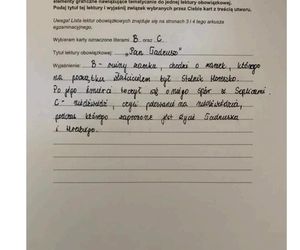 elementy graficzne nawiązujące tematycznie do jednej lektury obowiązkowej.
Podaj tytuł tej lektury i wyjaśnij związek wybranych przez Ciebie kart z treścią utworu.
Uwaga! Lista lektur obowiązkowych znajduje się na stronach 3 i 4 tego arkusza
egzaminacyjnego.
Wybieram karty oznaczone literami B oraz C.
Tytuł lektury obowiązkowej: „Pan Tadeusz"
Wyjaśnienie: B - ruiny zamku, chodzi o zamek, którego
na początku właścicielem był Stolnik Horeszko.
Po jego śmierci toczył się o niego spór z Soplicami.
C - niedźwiedź, czyli polowanie na niedźwiedzia,
podczas którego zagrożone jest życie Tadeusza
i Hrabiego.